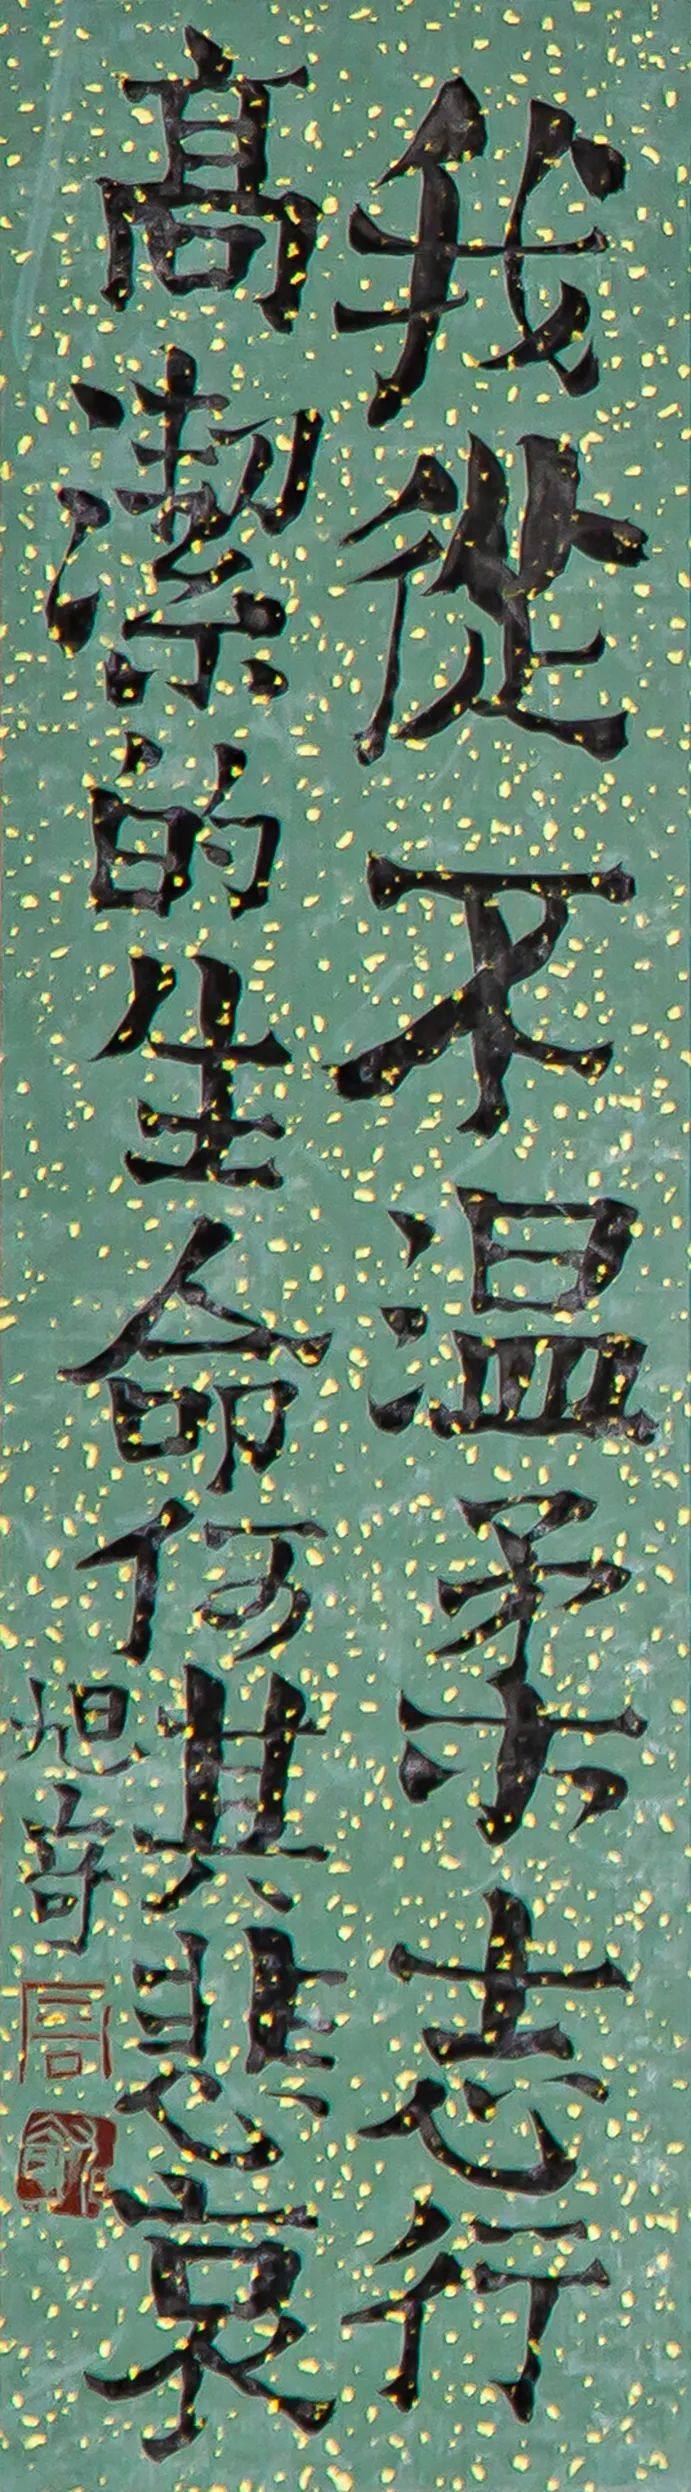 我從不温柔志行
高潔的生命何其悲哀
旭奇